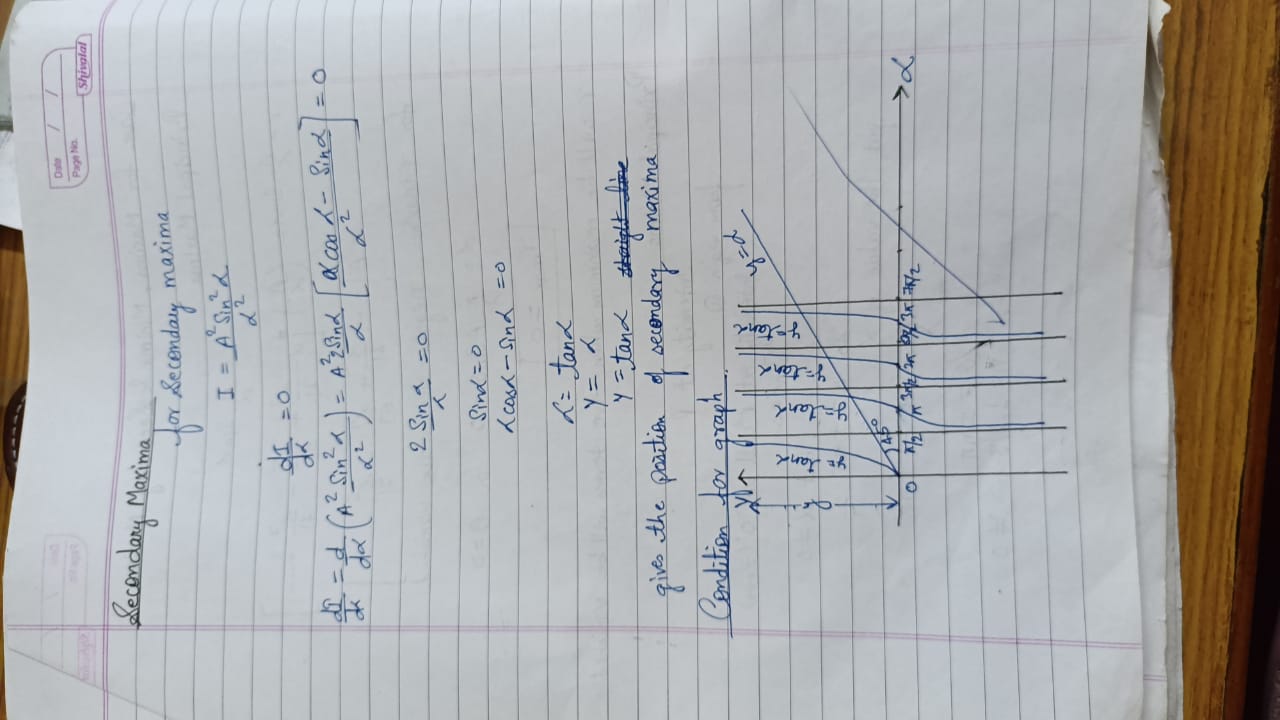 Date / /
Page No.
Shivalal
Secondary Maxima
for Secondary maxima
I = A² Sin² α / α²
dI/dα = 0
dI/dα = d/dα (A² Sin² α / α²) = A² 2 Sinα / α [α cos α - Sinα / α²] = 0
2 Sin α / α = 0
Sinα = 0
α cosα - Sinα = 0
α = tanα
y = α
y = tanα straight line
gives the position of secondary maxima
Condition for graph
y
y = α
y = tan α
y = tan α
y = tan α
y = tan α
y
45°
0 π/2 π 3π/2 2π 5π/2 3π 7π/2
α